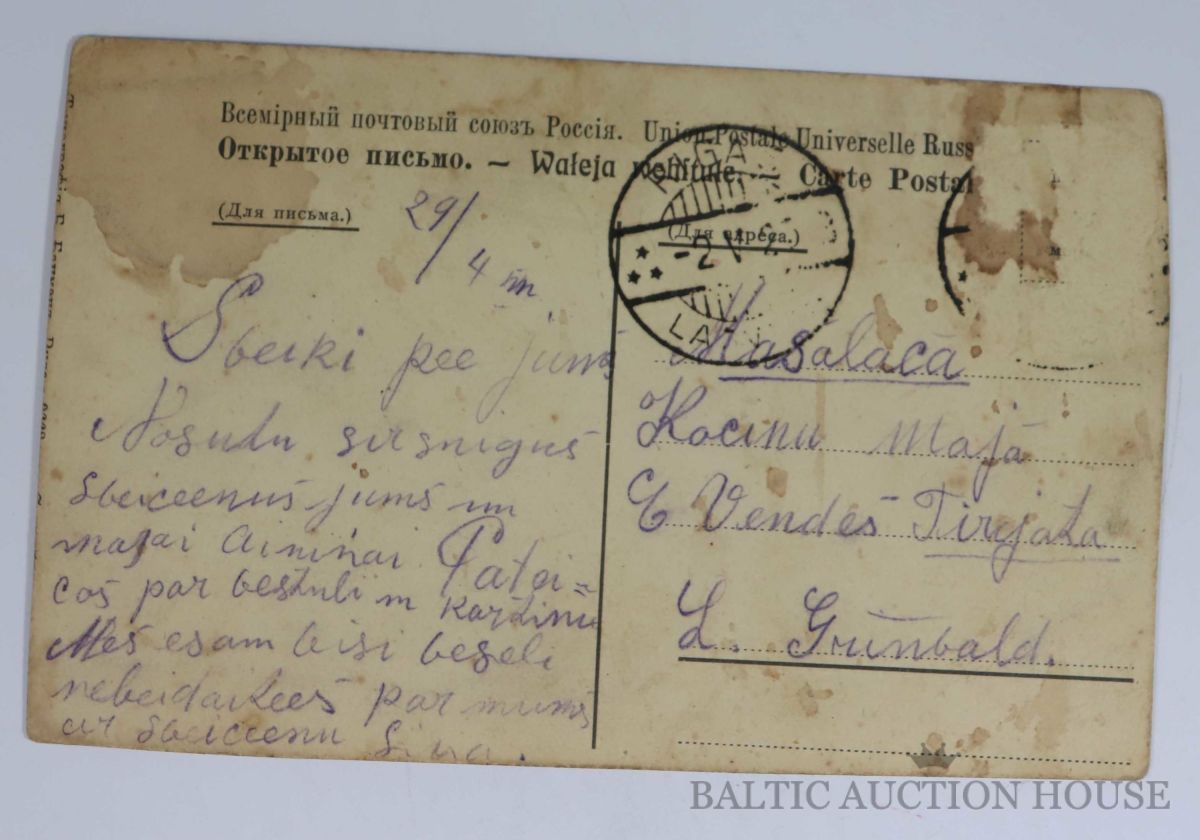 Всемірный почтовый союзъ Россія. Union Postale Universelle Russ
Открытое письмо. — Waleja — Carte Postal
(Для письма.)
(Для адреса.)
RIGA
-2 V 2
LATV
29/4
Sveiki pee jums
Nosutu sirsnigus
sveiceenus jums un
masai Aininai Patei=
cos par vestuli un kartinu
Mēs esam visi veseli
par mums
ar sveiceenu
Masalacā
Kocinu majā
E Vendes Tirgata
L. Grünvald.
BALTIC AUCTION HOUSE